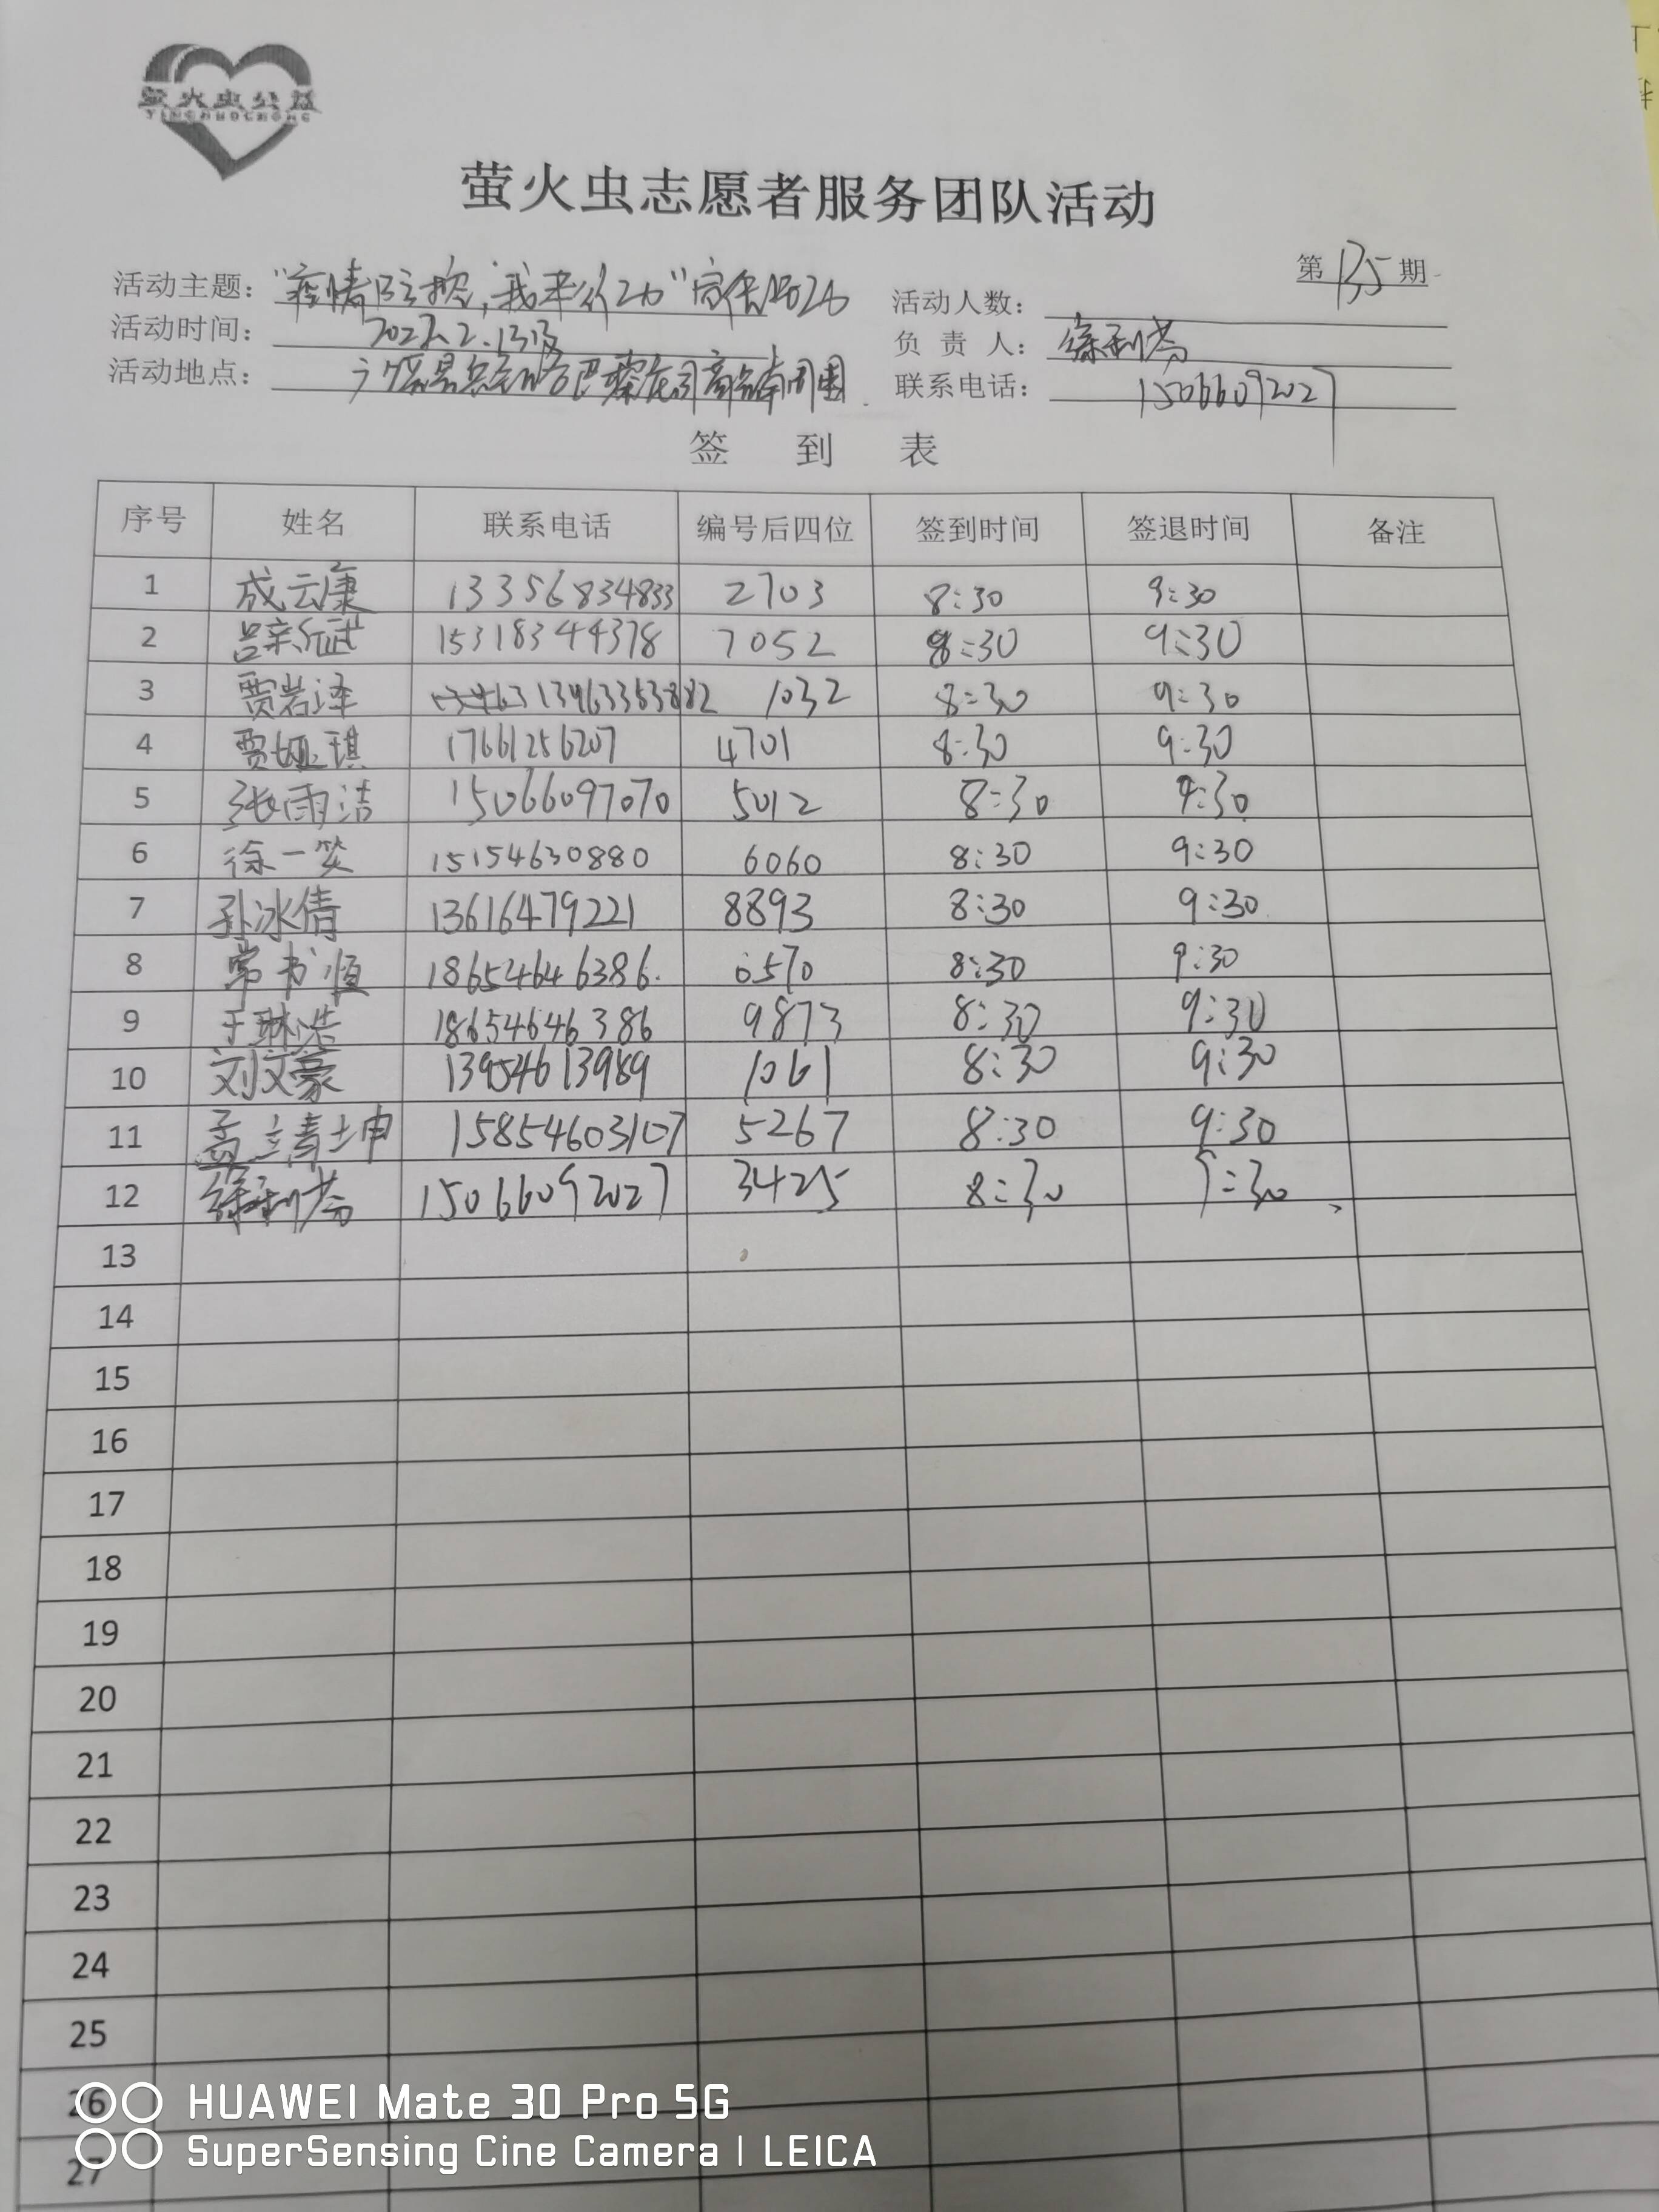 萤火虫公益
YINGHUOCHONG
萤火虫志愿者服务团队活动
第135期
活动主题: "疫情防控,我来助力"
活动人数:
活动时间: 2022.2.13
负责人: 徐利芳
活动地点: 周围
联系电话: 15066092027
签到表
序号 姓名 联系电话 编号后四位 签到时间 签退时间 备注
1 成云康 13356834833 2703 8:30 9:30
2 15318344378 7052 8:30 9:30
3 贾岩泽 13963353882 1032 8:30 9:30
4 贾娅琪 17661256207 4701 8:30 9:30
5 张雨洁 15066097070 5012 8:30 9:30
6 徐一笑 15154630880 6060 8:30 9:30
7 孙冰倩 13616479221 8893 8:30 9:30
8 常书恒 18654646386 0570 8:30 9:30
9 于琳浩 18654646386 9873 8:30 9:30
10 刘文豪 13954613989 1061 8:30 9:30
11 孟靖坤 15854603107 5267 8:30 9:30
12 徐利芳 15066092027 3425 8:30 9:30
13
14
15
16
17
18
19
20
21
22
23
24
25
26
27
HUAWEI Mate 30 Pro 5G
SuperSensing Cine Camera | LEICA